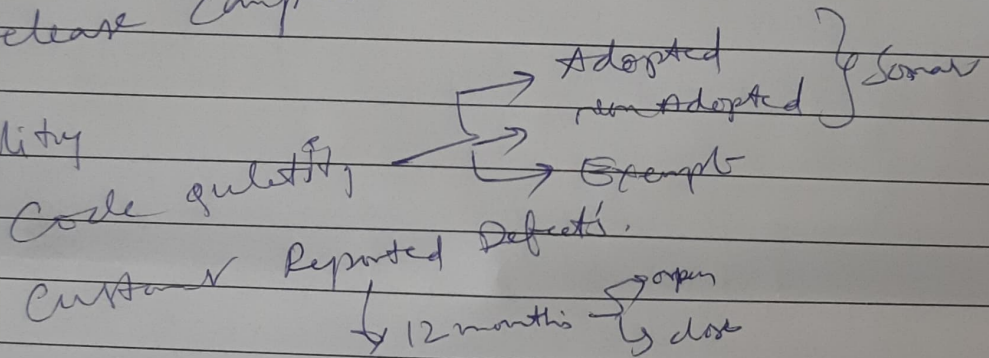 elease Comp
Adopted
non Adopted } Sonar
lity
Code qulatity
Exempt
Customer Reported Defects.
12 months
open
close